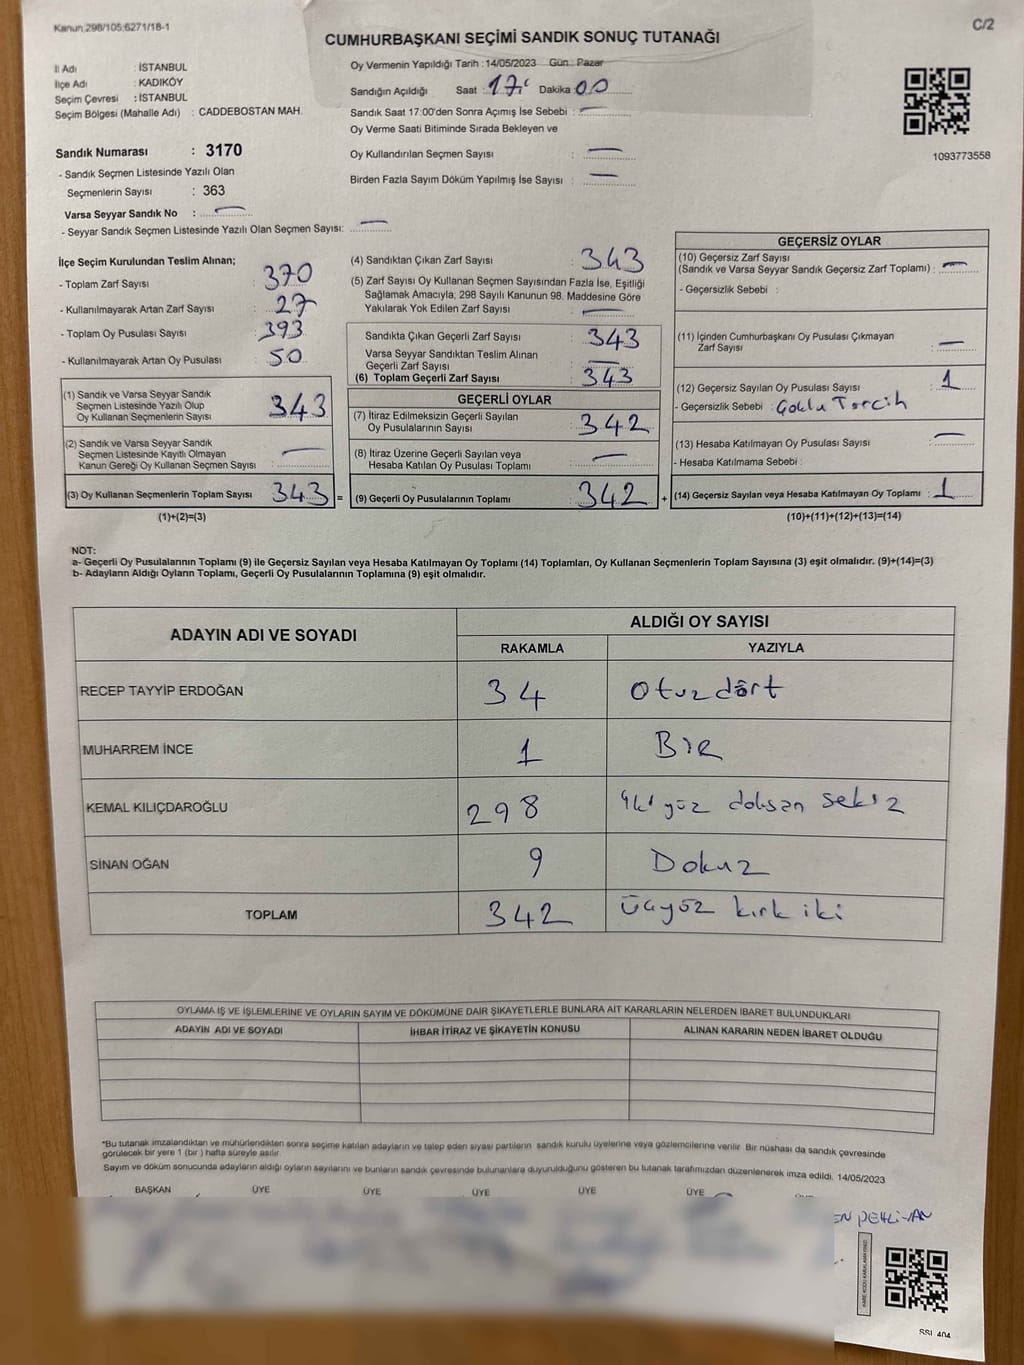 Kanun:298/105;6271/18-1
C/2
CUMHURBAŞKANI SEÇİMİ SANDIK SONUÇ TUTANAĞI
İl Adı : İSTANBUL
İlçe Adı : KADIKÖY
Seçim Çevresi : İSTANBUL
Seçim Bölgesi (Mahalle Adı) : CADDEBOSTAN MAH.
Oy Vermenin Yapıldığı Tarih : 14/05/2023 Gün : Pazar
Sandığın Açıldığı Saat : 17 Dakika : 00
Sandık Saat 17:00'den Sonra Açımış İse Sebebi : —
Oy Verme Saati Bitiminde Sırada Bekleyen ve
Oy Kullandırılan Seçmen Sayısı : —
Birden Fazla Sayım Döküm Yapılmış İse Sayısı : —
1093773558
Sandık Numarası : 3170
- Sandık Seçmen Listesinde Yazılı Olan
Seçmenlerin Sayısı : 363
Varsa Seyyar Sandık No : —
- Seyyar Sandık Seçmen Listesinde Yazılı Olan Seçmen Sayısı: —
İlçe Seçim Kurulundan Teslim Alınan;
- Toplam Zarf Sayısı : 370
- Kullanılmayarak Artan Zarf Sayısı : 27
- Toplam Oy Pusulası Sayısı : 393
- Kullanılmayarak Artan Oy Pusulası : 50
(1) Sandık ve Varsa Seyyar Sandık
Seçmen Listesinde Yazılı Olup
Oy Kullanan Seçmenlerin Sayısı : 343
(2) Sandık ve Varsa Seyyar Sandık
Seçmen Listesinde Kayıtlı Olmayan
Kanun Gereği Oy Kullanan Seçmen Sayısı : —
(3) Oy Kullanan Seçmenlerin Toplam Sayısı : 343 =
(1)+(2)=(3)
(4) Sandıktan Çıkan Zarf Sayısı : 343
(5) Zarf Sayısı Oy Kullanan Seçmen Sayısından Fazla İse, Eşitliği
Sağlamak Amacıyla; 298 Sayılı Kanunun 98. Maddesine Göre
Yakılarak Yok Edilen Zarf Sayısı : —
Sandıkta Çıkan Geçerli Zarf Sayısı : 343
Varsa Seyyar Sandıktan Teslim Alınan
Geçerli Zarf Sayısı : —
(6) Toplam Geçerli Zarf Sayısı : 343
GEÇERLİ OYLAR
(7) İtiraz Edilmeksizin Geçerli Sayılan
Oy Pusulalarının Sayısı : 342
(8) İtiraz Üzerine Geçerli Sayılan veya
Hesaba Katılan Oy Pusulası Toplamı : —
(9) Geçerli Oy Pusulalarının Toplamı : 342 +
GEÇERSİZ OYLAR
(10) Geçersiz Zarf Sayısı
(Sandık ve Varsa Seyyar Sandık Geçersiz Zarf Toplamı) : —
- Geçersizlik Sebebi :
(11) İçinden Cumhurbaşkanı Oy Pusulası Çıkmayan
Zarf Sayısı : —
(12) Geçersiz Sayılan Oy Pusulası Sayısı : 1
- Geçersizlik Sebebi : Çoklu Tercih
(13) Hesaba Katılmayan Oy Pusulası Sayısı : —
- Hesaba Katılmama Sebebi :
(14) Geçersiz Sayılan veya Hesaba Katılmayan Oy Toplamı : 1
(10)+(11)+(12)+(13)=(14)
NOT:
a- Geçerli Oy Pusulalarının Toplamı (9) ile Geçersiz Sayılan veya Hesaba Katılmayan Oy Toplamı (14) Toplamları, Oy Kullanan Seçmenlerin Toplam Sayısına (3) eşit olmalıdır. (9)+(14)=(3)
b- Adayların Aldığı Oyların Toplamı, Geçerli Oy Pusulalarının Toplamına (9) eşit olmalıdır.
ADAYIN ADI VE SOYADI ALDIĞI OY SAYISI
RAKAMLA YAZIYLA
RECEP TAYYİP ERDOĞAN 34 Otuzdört
MUHARREM İNCE 1 BİR
KEMAL KILIÇDAROĞLU 298 iki yüz doksan sekiz
SİNAN OĞAN 9 Dokuz
TOPLAM 342 Üçyüz kırk iki
OYLAMA İŞ VE İŞLEMLERİNE VE OYLARIN SAYIM VE DÖKÜMÜNE DAİR ŞİKAYETLERLE BUNLARA AİT KARARLARIN NELERDEN İBARET BULUNDUKLARI
ADAYIN ADI VE SOYADI İHBAR İTİRAZ VE ŞİKAYETİN KONUSU ALINAN KARARIN NEDEN İBARET OLDUĞU
*Bu tutanak imzalandıktan ve mühürlendikten sonra seçime katılan adayların ve talep eden siyasi partilerin sandık kurulu üyelerine veya gözlemcilerine verilir. Bir nüshası da sandık çevresinde
görülecek bir yere 1 (bir) hafta süreyle asılır.
Sayım ve döküm sonucunda adayların aldığı oyların sayılarını ve bunların sandık çevresinde bulunanlara duyurulduğunu gösteren bu tutanak tarafımızdan düzenlenerek imza edildi. 14/05/2023
BAŞKAN ÜYE ÜYE ÜYE ÜYE ÜYE
EN PEHLİVAN
SSI_404